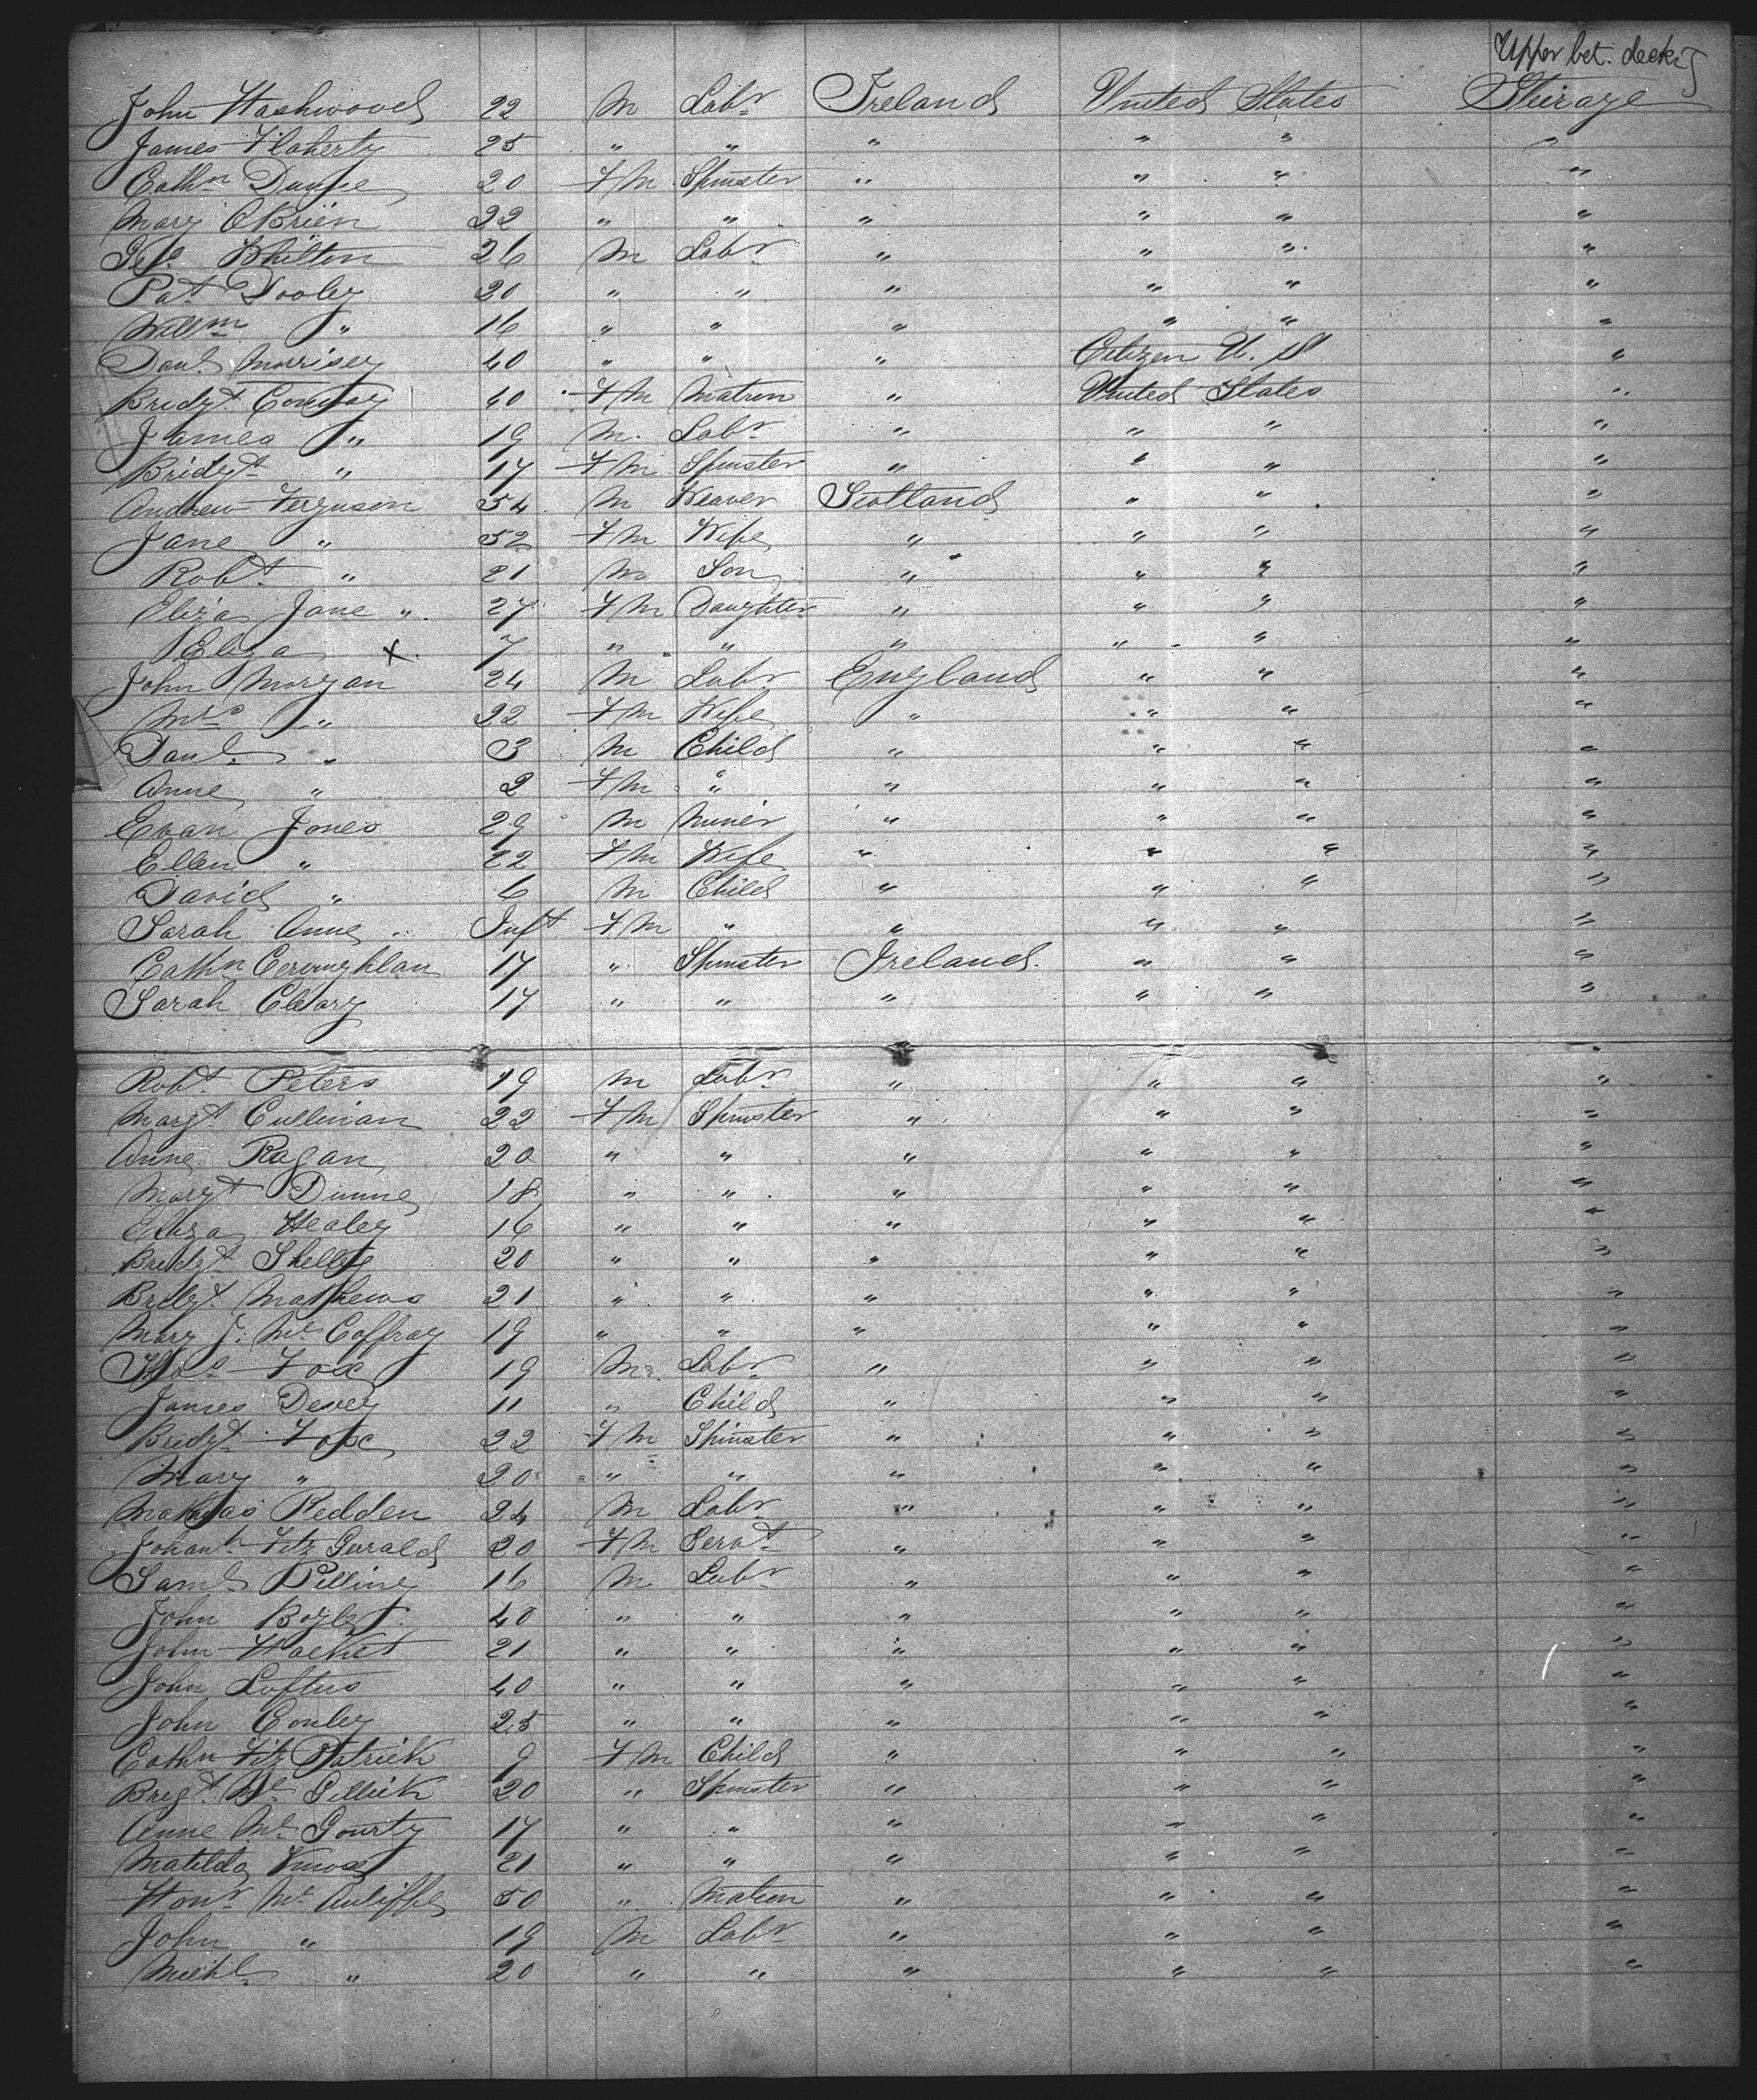 Upper bet. decks
John Washwood 22 M Labr Ireland United States Steirage
James Flaherty 25 " " " " " "
Cathn Dunne 20 FM Spinster " " " "
Mary O'Brien 22 " " " " " "
Geo. Whilton 26 M Labr " " " "
Pat Dooley 20 " " " " " "
Willm " 16 " " " " " "
Danl. Morrisey 40 " " " Citizen U. S "
Bridgt. Conway 40 FM Matron " United States "
James " 19 M. Labr " " " "
Bridgt " 17 FM Spinster " " " "
Andrew Ferguson 54 M Weaver Scotland " " "
Jane " 52 FM Wife " " " "
Robt. " 21 M Son " " " "
Eliza Jane " 27 FM Daughter " " " "
Eliza X 7 " " " " " "
John Morgan 24 M Labr England " " "
Mrs " 22 FM Wife " " " "
Danl. " 3 M Child " " " "
Anne " 2 FM " " " " "
Evan Jones 29 M Miner " " " "
Ellen " 22 FM Wife " " " "
David " 6 M Child " " " "
Sarah Anne " Inft FM " " " " "
Cathn 17 " Spinster Ireland " " "
Sarah Cleary 17 " " " " " "
Robt. Peters 19 M Labr " " " "
Margt. Cullinan 22 FM Spinster " " " "
Anne Ragan 20 " " " " " "
Margt Dunne 18 " " " " " "
Eliza Healey 16 " " " " " "
Bridgt Shelly 20 " " " " " "
Bridgt. Mathews 21 " " " " " "
Mary J. Mc Caffray 19 " " " " " "
Thos Fox 19 M. Labr " " " "
James Devey 11 " Child " " " "
Bridgt Fox 22 FM Spinster " " " "
Mary " 20 " " " " " "
Redden 24 M Labr " " " "
Johanh Fitz Gerald 20 FM Servt " " " "
Saml Pilling 16 M Labr " " " "
John 40 " " " " " "
John Hacket 21 " " " " " "
John Loftus 40 " " " " " "
John Conley 25 " " " " " "
Cathn Fitz Patrick 9 FM Child " " " "
Bregt. Mc Gillick 20 " Spinster " " " "
Anne Mc Gourty 17 " " " " " "
Matilda Knox 21 " " " " " "
Honr Mc Auliffe 50 " Matron " " " "
John " 19 M Labr " " " "
Michl. " 20 " " " " " "